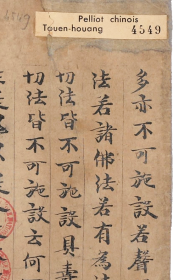 4549
Pelliot chinois
Touen-houang 4549
多亦不可施設若聲
法若諸佛法若有為法
切法皆不可施設具壽
切法皆不可施設云何